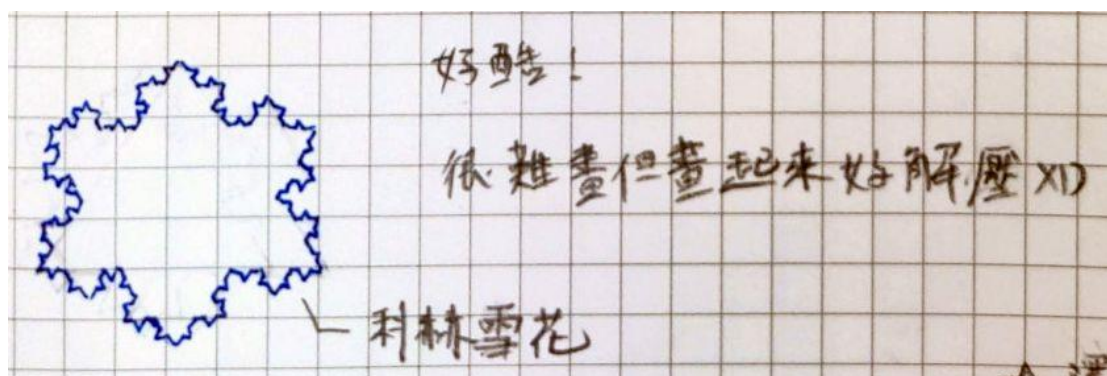 好酷！
很難畫但畫起來好解壓 XD
科赫雪花